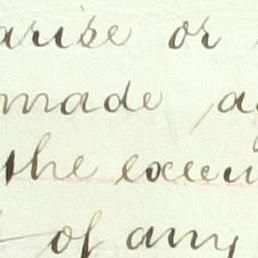 arise or
made a
the execu
of any